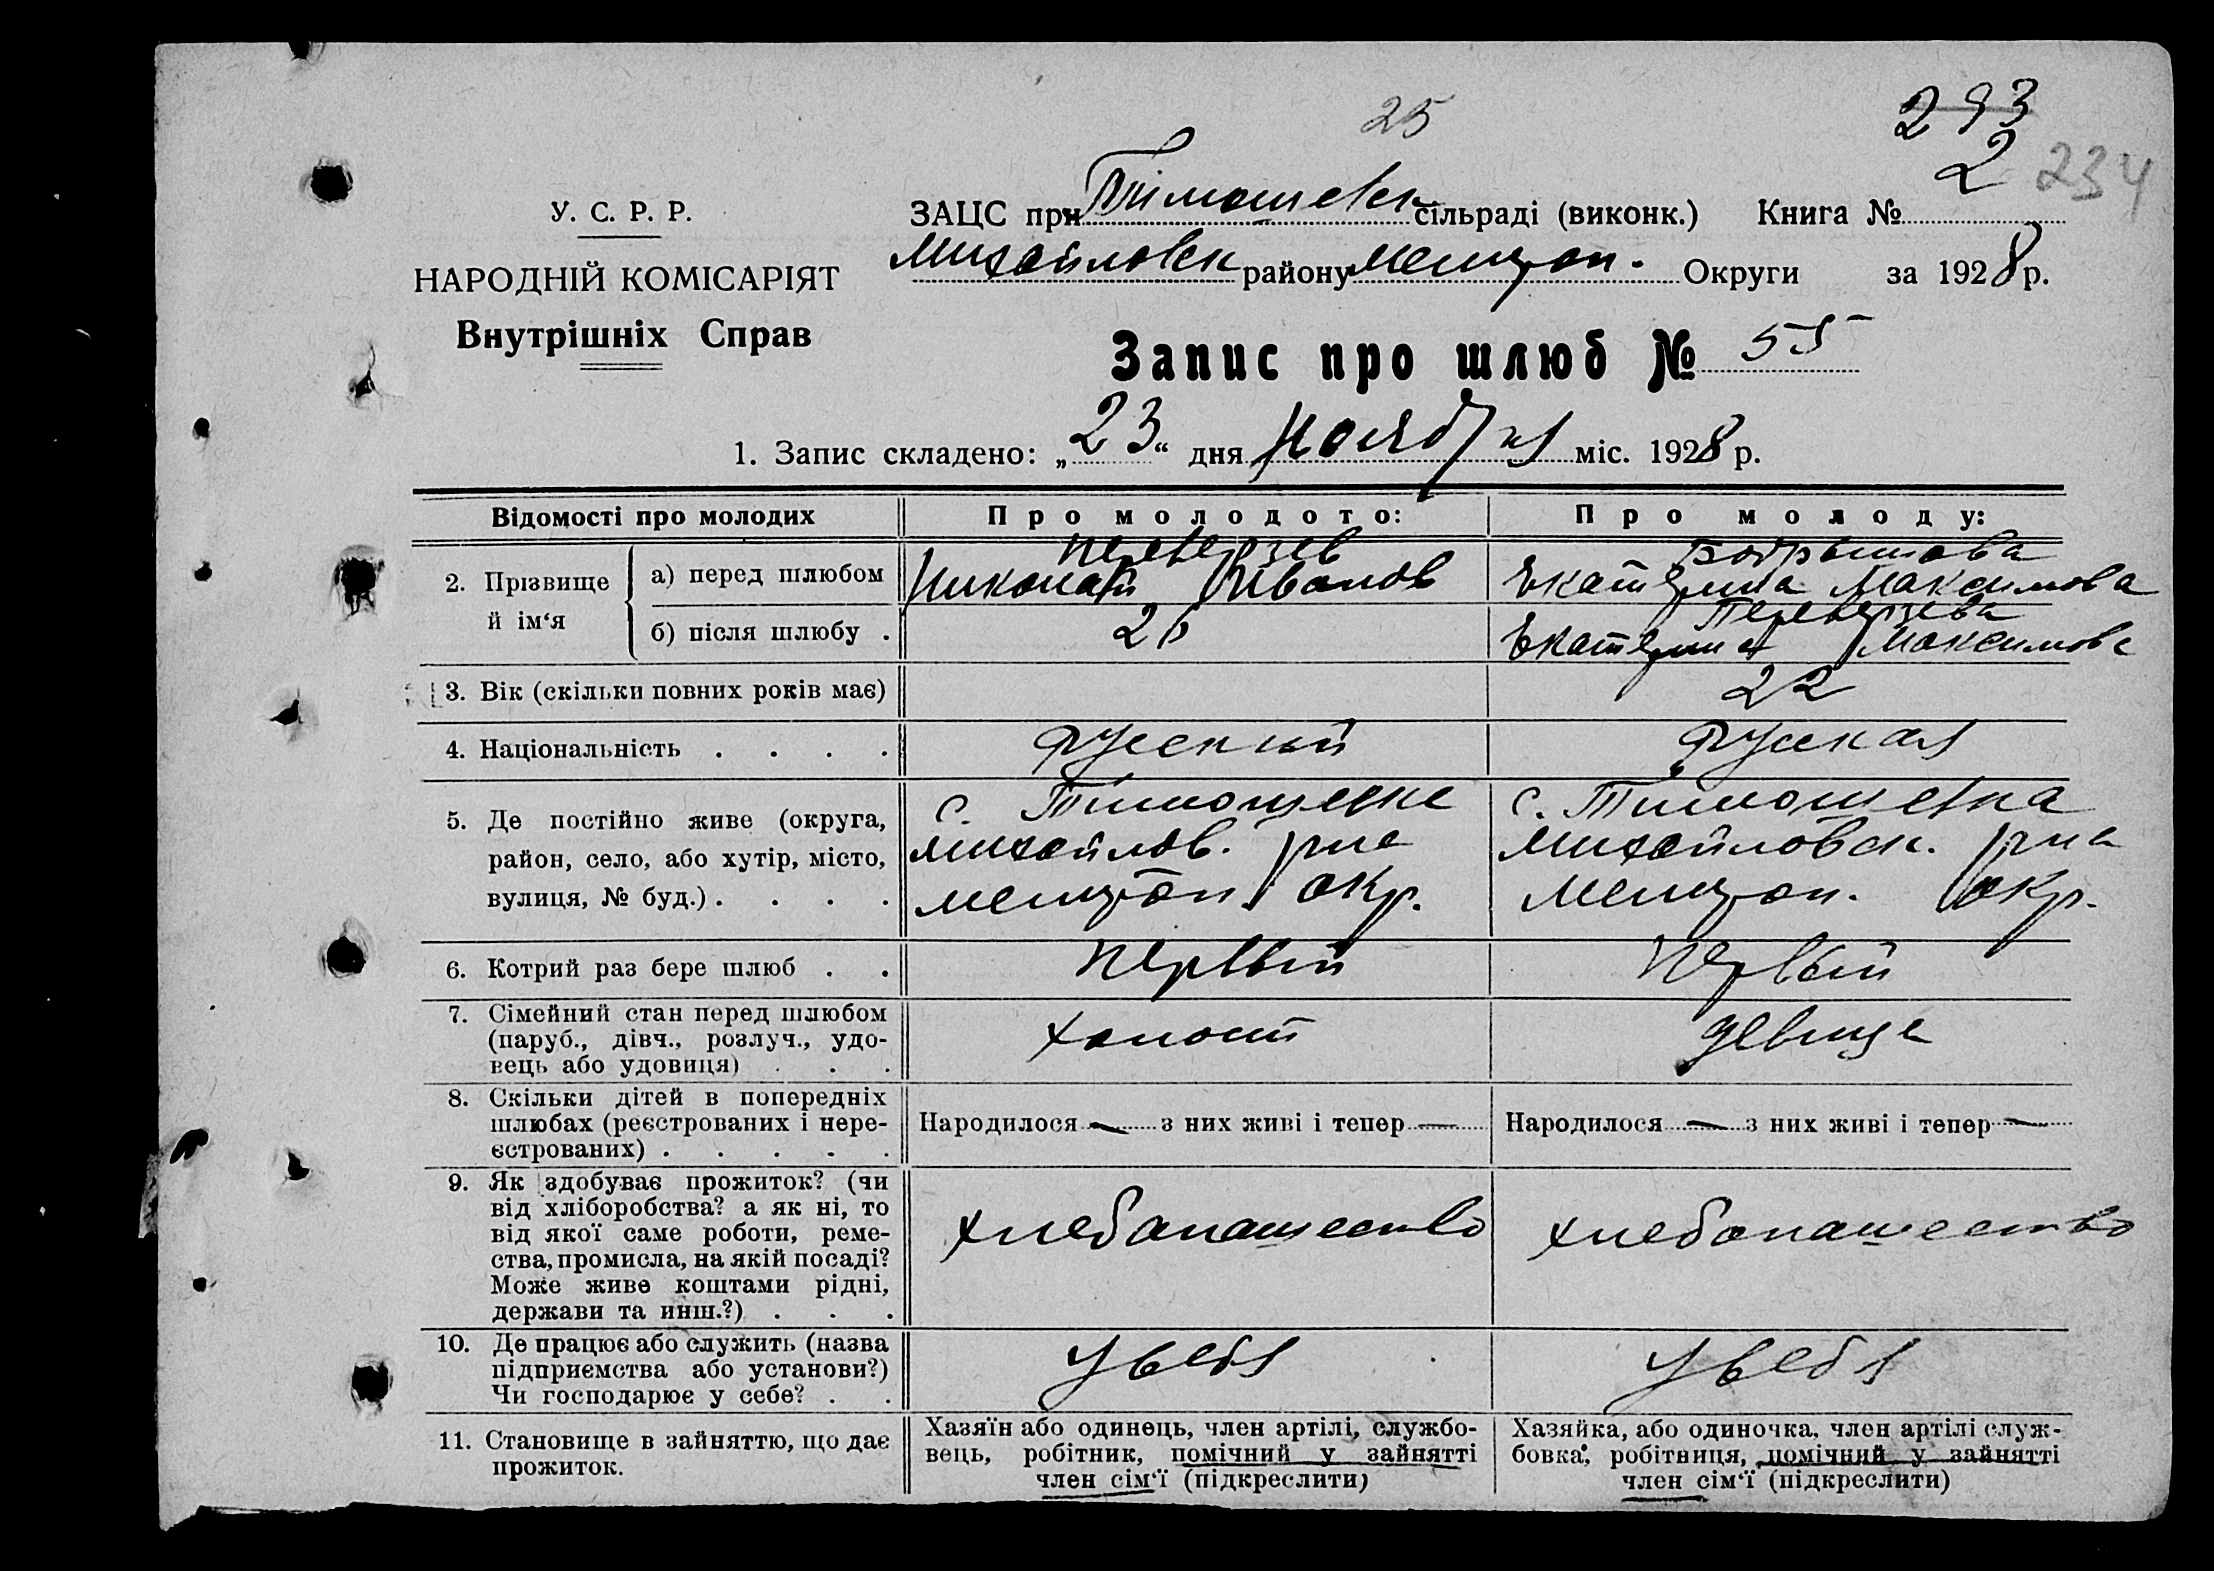 25
293
2 234
У. С. Р. Р.
НАРОДНІЙ КОМІСАРІЯТ
Внутрішніх Справ
ЗАЦС при Тимошевск сільраді (виконк.) Книга №
Михайловск району Мелитоп. Округи за 1928 р.
Запис про шлюб № 55
1. Запис складено: „23“ дня Ноября міс. 1928 р.
Відомості про молодих
Про молодого:
Про молоду:
2. Прізвище й ім‘я
а) перед шлюбом
Переверзев
Иванов
Екатерина Максимова
б) після шлюбу .
26
Переверзева
Екатерина Максимова
3. Вік (скільки повних років має)
22
4. Національність . . . .
Русский
Русская
5. Де постійно живе (округа,
район, село, або хутір, місто,
вулиця, № буд.) . . . .
с. Тимошевке
Михайлов. рна
Мелитоп. окр.
с. Тимошевка
Михайловск. рна
Мелитоп. окр.
6. Котрий раз бере шлюб . .
Первый
Первый
7. Сімейний стан перед шлюбом
(паруб., дівч., розлуч., удо-
вець або удовиця) . . .
холост
девица
8. Скільки дітей в попередніх
шлюбах (реєстрованих і нере-
єстрованих) . . . . .
Народилося — з них живі і тепер —
Народилося — з них живі і тепер —
9. Як здобуває прожиток? (чи
від хліборобства? а як ні, то
від якої саме роботи, реме-
ства, промисла, на якій посаді?
Може живе коштами рідні,
держави та инш.?) . . .
хлебопашество
хлебопашество
10. Де працює або служить (назва
підприємства або установи?)
Чи господарює у себе? . .
У себя
У себя
11. Становище в зайняттю, що дає
прожиток.
Хазяїн або одинець, член артілі, службо-
вець, робітник, помічний у зайнятті
член сім‘ї (підкреслити)
Хазяйка, або одиночка, член артілі служ-
бовка, робітниця, помічний у зайнятті
член сім‘ї (підкреслити)